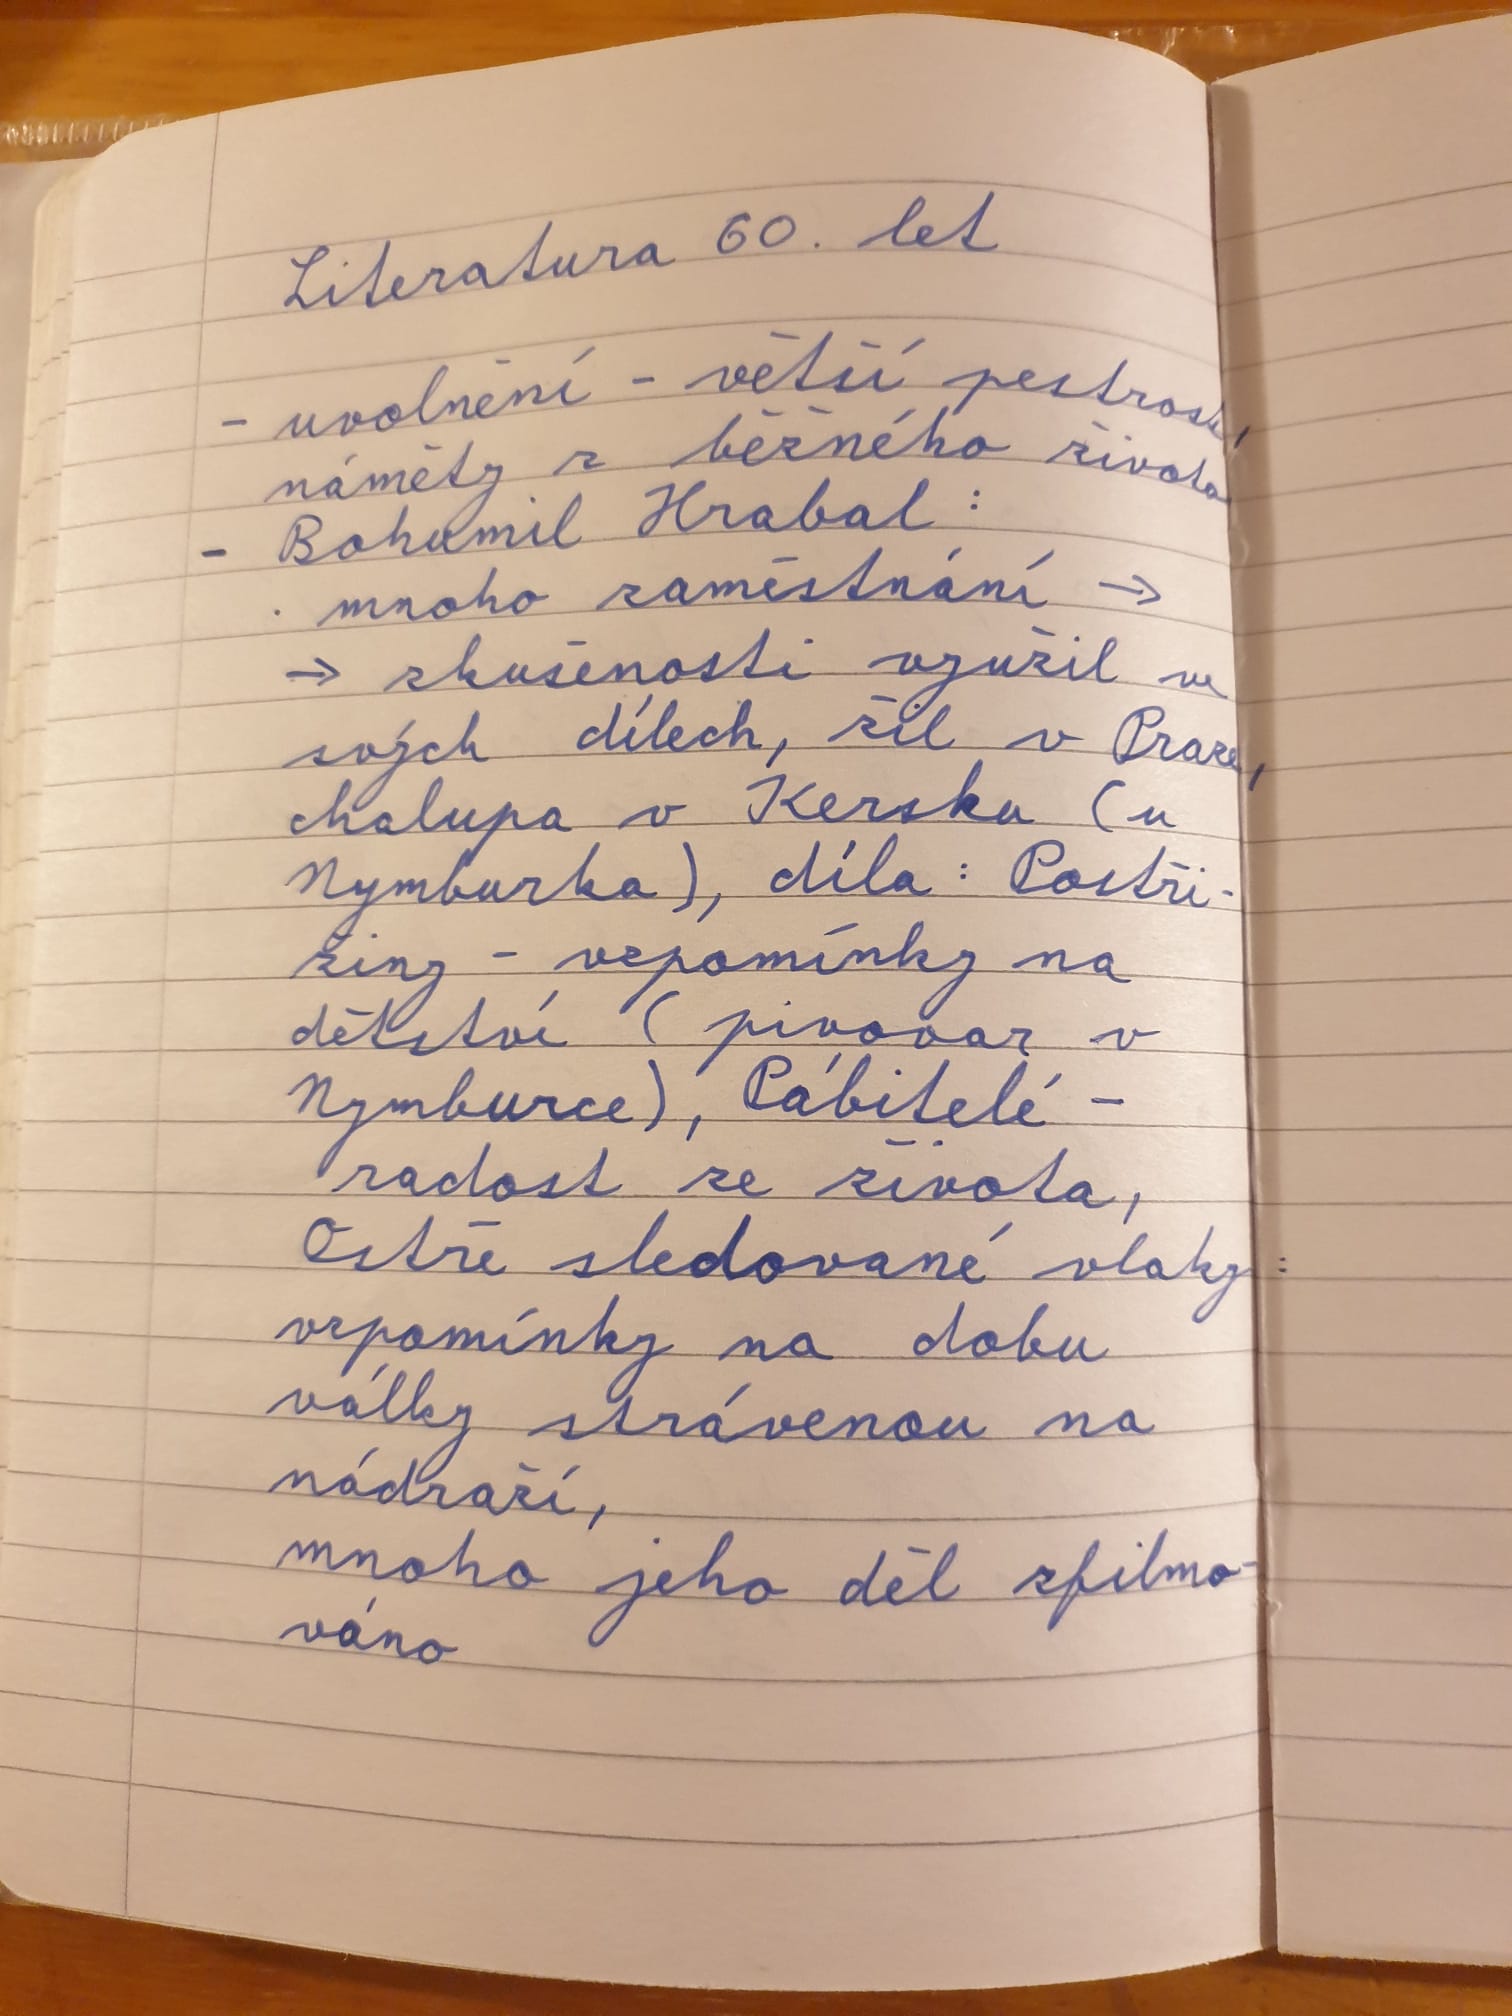 Literatura 60. let
- uvolnění - větší pestrost,
náměty z běžného života
- Bohumil Hrabal:
· mnoho zaměstnání →
→ zkušenosti využil ve
svých dílech, žil v Praze,
chalupa v Kersku (u
Nymburka), díla: Postři-
žiny - vzpomínky na
dětství (pivovar v
Nymburce), Pábitelé -
radost ze života,
Ostře sledované vlaky:
vzpomínky na dobu
války strávenou na
nádraží,
mnoho jeho děl zfilmo-
váno